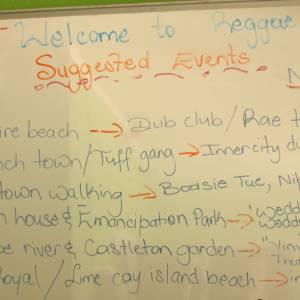 Welcome to Reggae
Suggested Events
beach --> Dub club / Rae
town/Tuff gang → Innercity
town walking → Boasie Tue, Nit
house & Emancipation Park → 'Wedd
Wedd
river & Castleton garden → "Vin
Thur
Royal / Lime cay island beach →